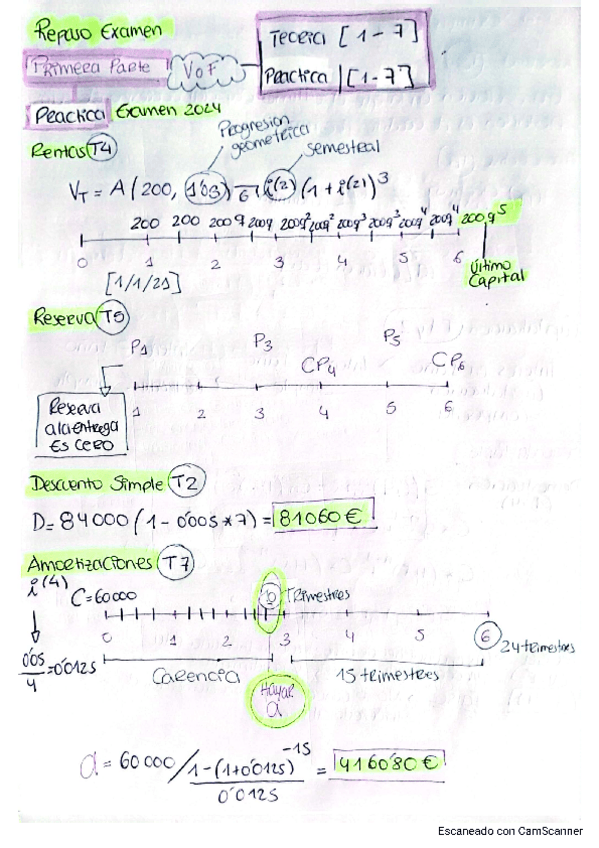 Repaso Examen
Primera Parte
VoF
Teoria [1-7]
Practica [1-7]
Practica Examen 2024
Progresion
geometrica
Rentas T4
semestral
V_T = A(200, 1'03)‾6| i(2) (1 + i(2))^3
200 200 200q 200q 200q² 200q² 200q³ 200q³ 200q⁴ 200q⁴ 200q⁵
0 1 2 3 4 5 6
[1/1/21]
Último
Capital
Reserva T5
P1 P3 P5
CP4 CP6
Reserva
a la entrega
Es cero
1 2 3 4 5 6
Descuento Simple T2
D = 84000 (1 - 0'005 * 7) = 81060 €
Amortizaciones T7
i^(4)
C = 60000
Trimestres
0 1 2 3 4 5 6 24 trimestres
0'05/4 = 0'0125
Carencia
15 trimestres
Hayar
a
a = 60000 / 1-(1+0'0125)^-15 / 0'0125 = 4160'80 €
Escaneado con CamScanner